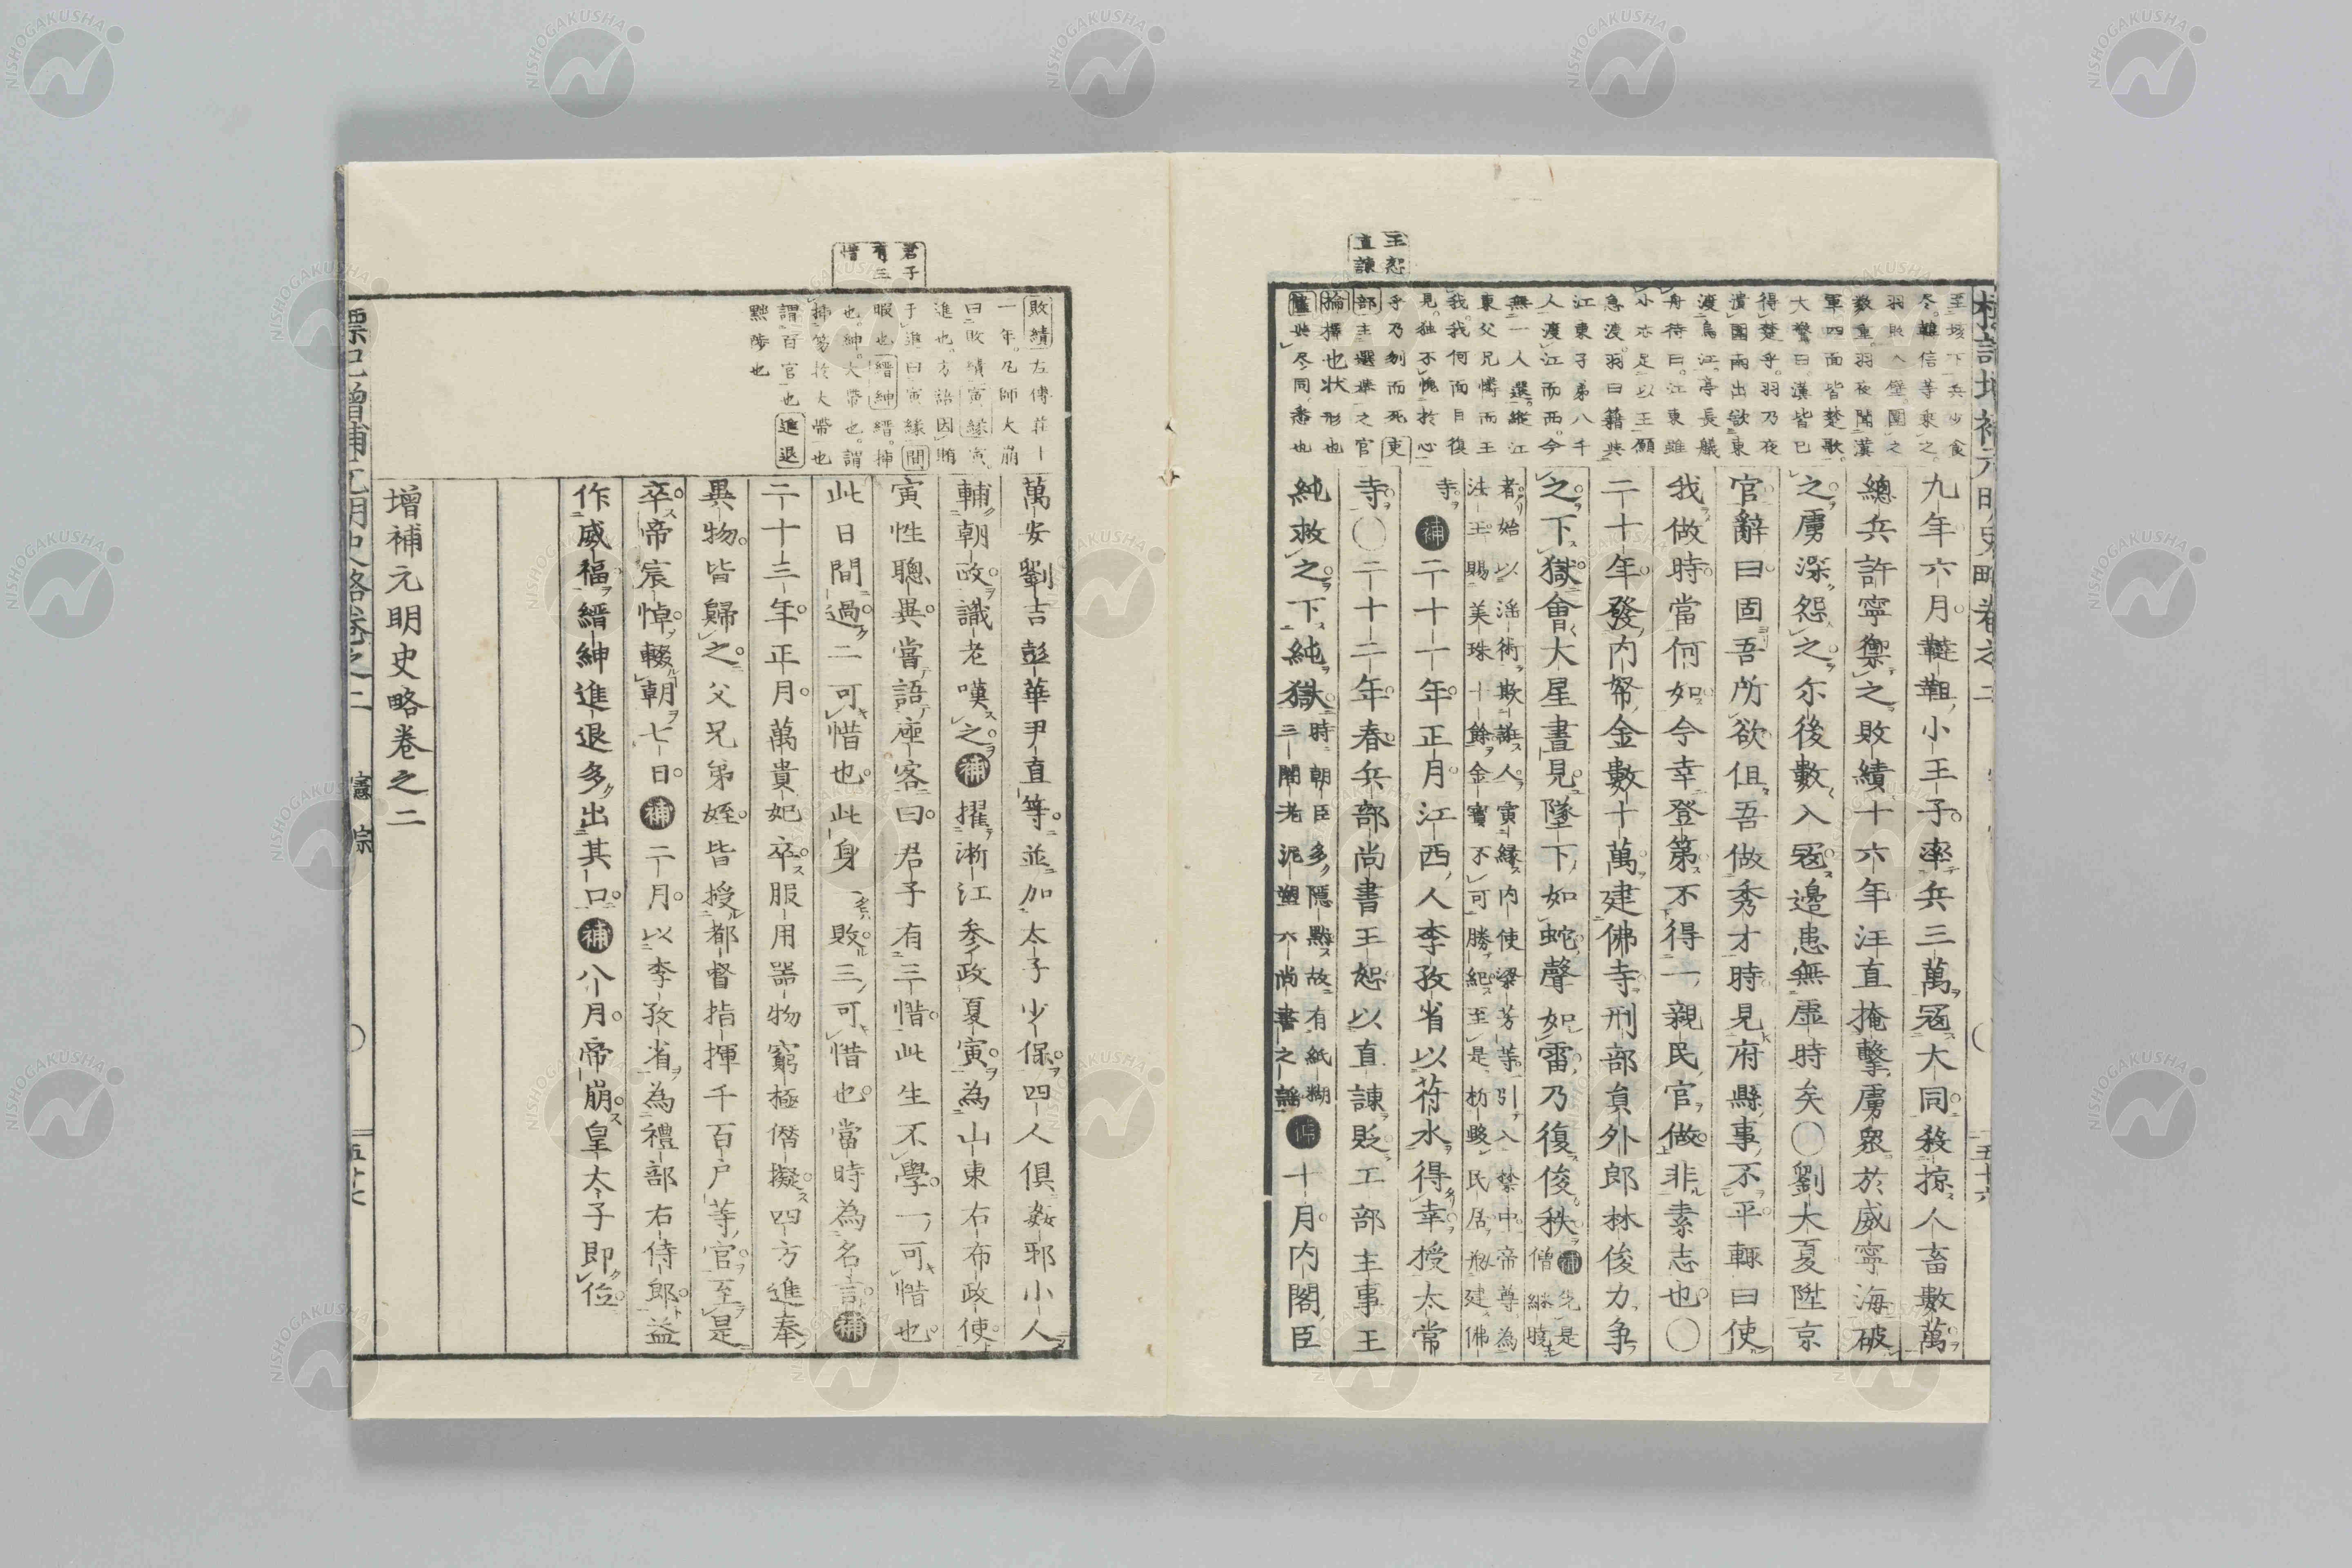 王恕
直諫
王垓下兵少食
尽韓信等乗之
羽敗入壁圍之
数重羽夜聞漢
軍四面皆楚歌
大驚曰漢皆已
得楚乎羽乃夜
潰圍南出欲東
渡烏江亭長艤
舟待曰江東雖
小亦足以王願
急渡羽曰籍与
江東子弟八千
人渡江而西今
無一人還縦江
東父兄憐而王
我我何面目復
見独不愧於心
乎乃刎而死吏
部主選挙之官
掄擇也状形也
尽同悉也
九年六月韃靼小王子率兵三萬冦大同殺掠人畜數萬
總兵許寧禦之敗績十六年汪直掩擊虜衆於威寧海破
之虜深怨之尓後數入冦邊患無虛時矣〇劉大夏陞京
官辭曰固吾所欲但吾做秀才時見府縣事不平輙曰使
我做時當何如今幸登第不得一親民官做非素志也〇
二十年發內帑金數十萬建佛寺刑部員外郎林俊力争
之下獄會大星晝見墜下如蛇聲如雷乃復俊秩補先是僧継暁
者始以滛術欺誑人寅縁内使梁芳等引入禁中帝尊為
法王賜美珠十餘金寶不可勝紀至是枋毆民居剏建佛
寺補二十一年正月江西人李孜省以符水得幸授太常
寺〇二十二年春兵部尚書王恕以直諫貶工部主事王
純救之下純獄時朝臣多隱黙故有紙糊三閣老泥塑六尚書之謡補十月内閣臣
標記増補元明史略卷之二
五十六
君子
有三
惜
敗績左傳荘十
一年凡師大崩
曰敗績寅縁寅
進也方語因賄
于進曰寅縁間
暇也縉紳縉挿
也紳大帶也謂
挿笏於大帶也
謂百官也進退
黙陟也
萬安劉吉彭華尹直等並加太子少保四人倶姦邪小人
輔朝政識老嘆之補擢浙江参政夏寅為山東右布政使
寅性聰異嘗語座客曰君子有三惜此生不學一可惜也
此日間過二可惜也此身一敗三可惜也當時為名言補
二十三年正月萬貴妃卒服用器物窮極僭擬四方進奉
異物皆歸之父兄弟姪皆授都督指揮千百戶等官至是
卒帝宸悼輟朝七日補二月以李孜省為禮部右侍郎益
作威福縉紳進退多出其口補八月帝崩皇太子即位
増補元明史略卷之二
標記増補元明史略卷之二
憲宗